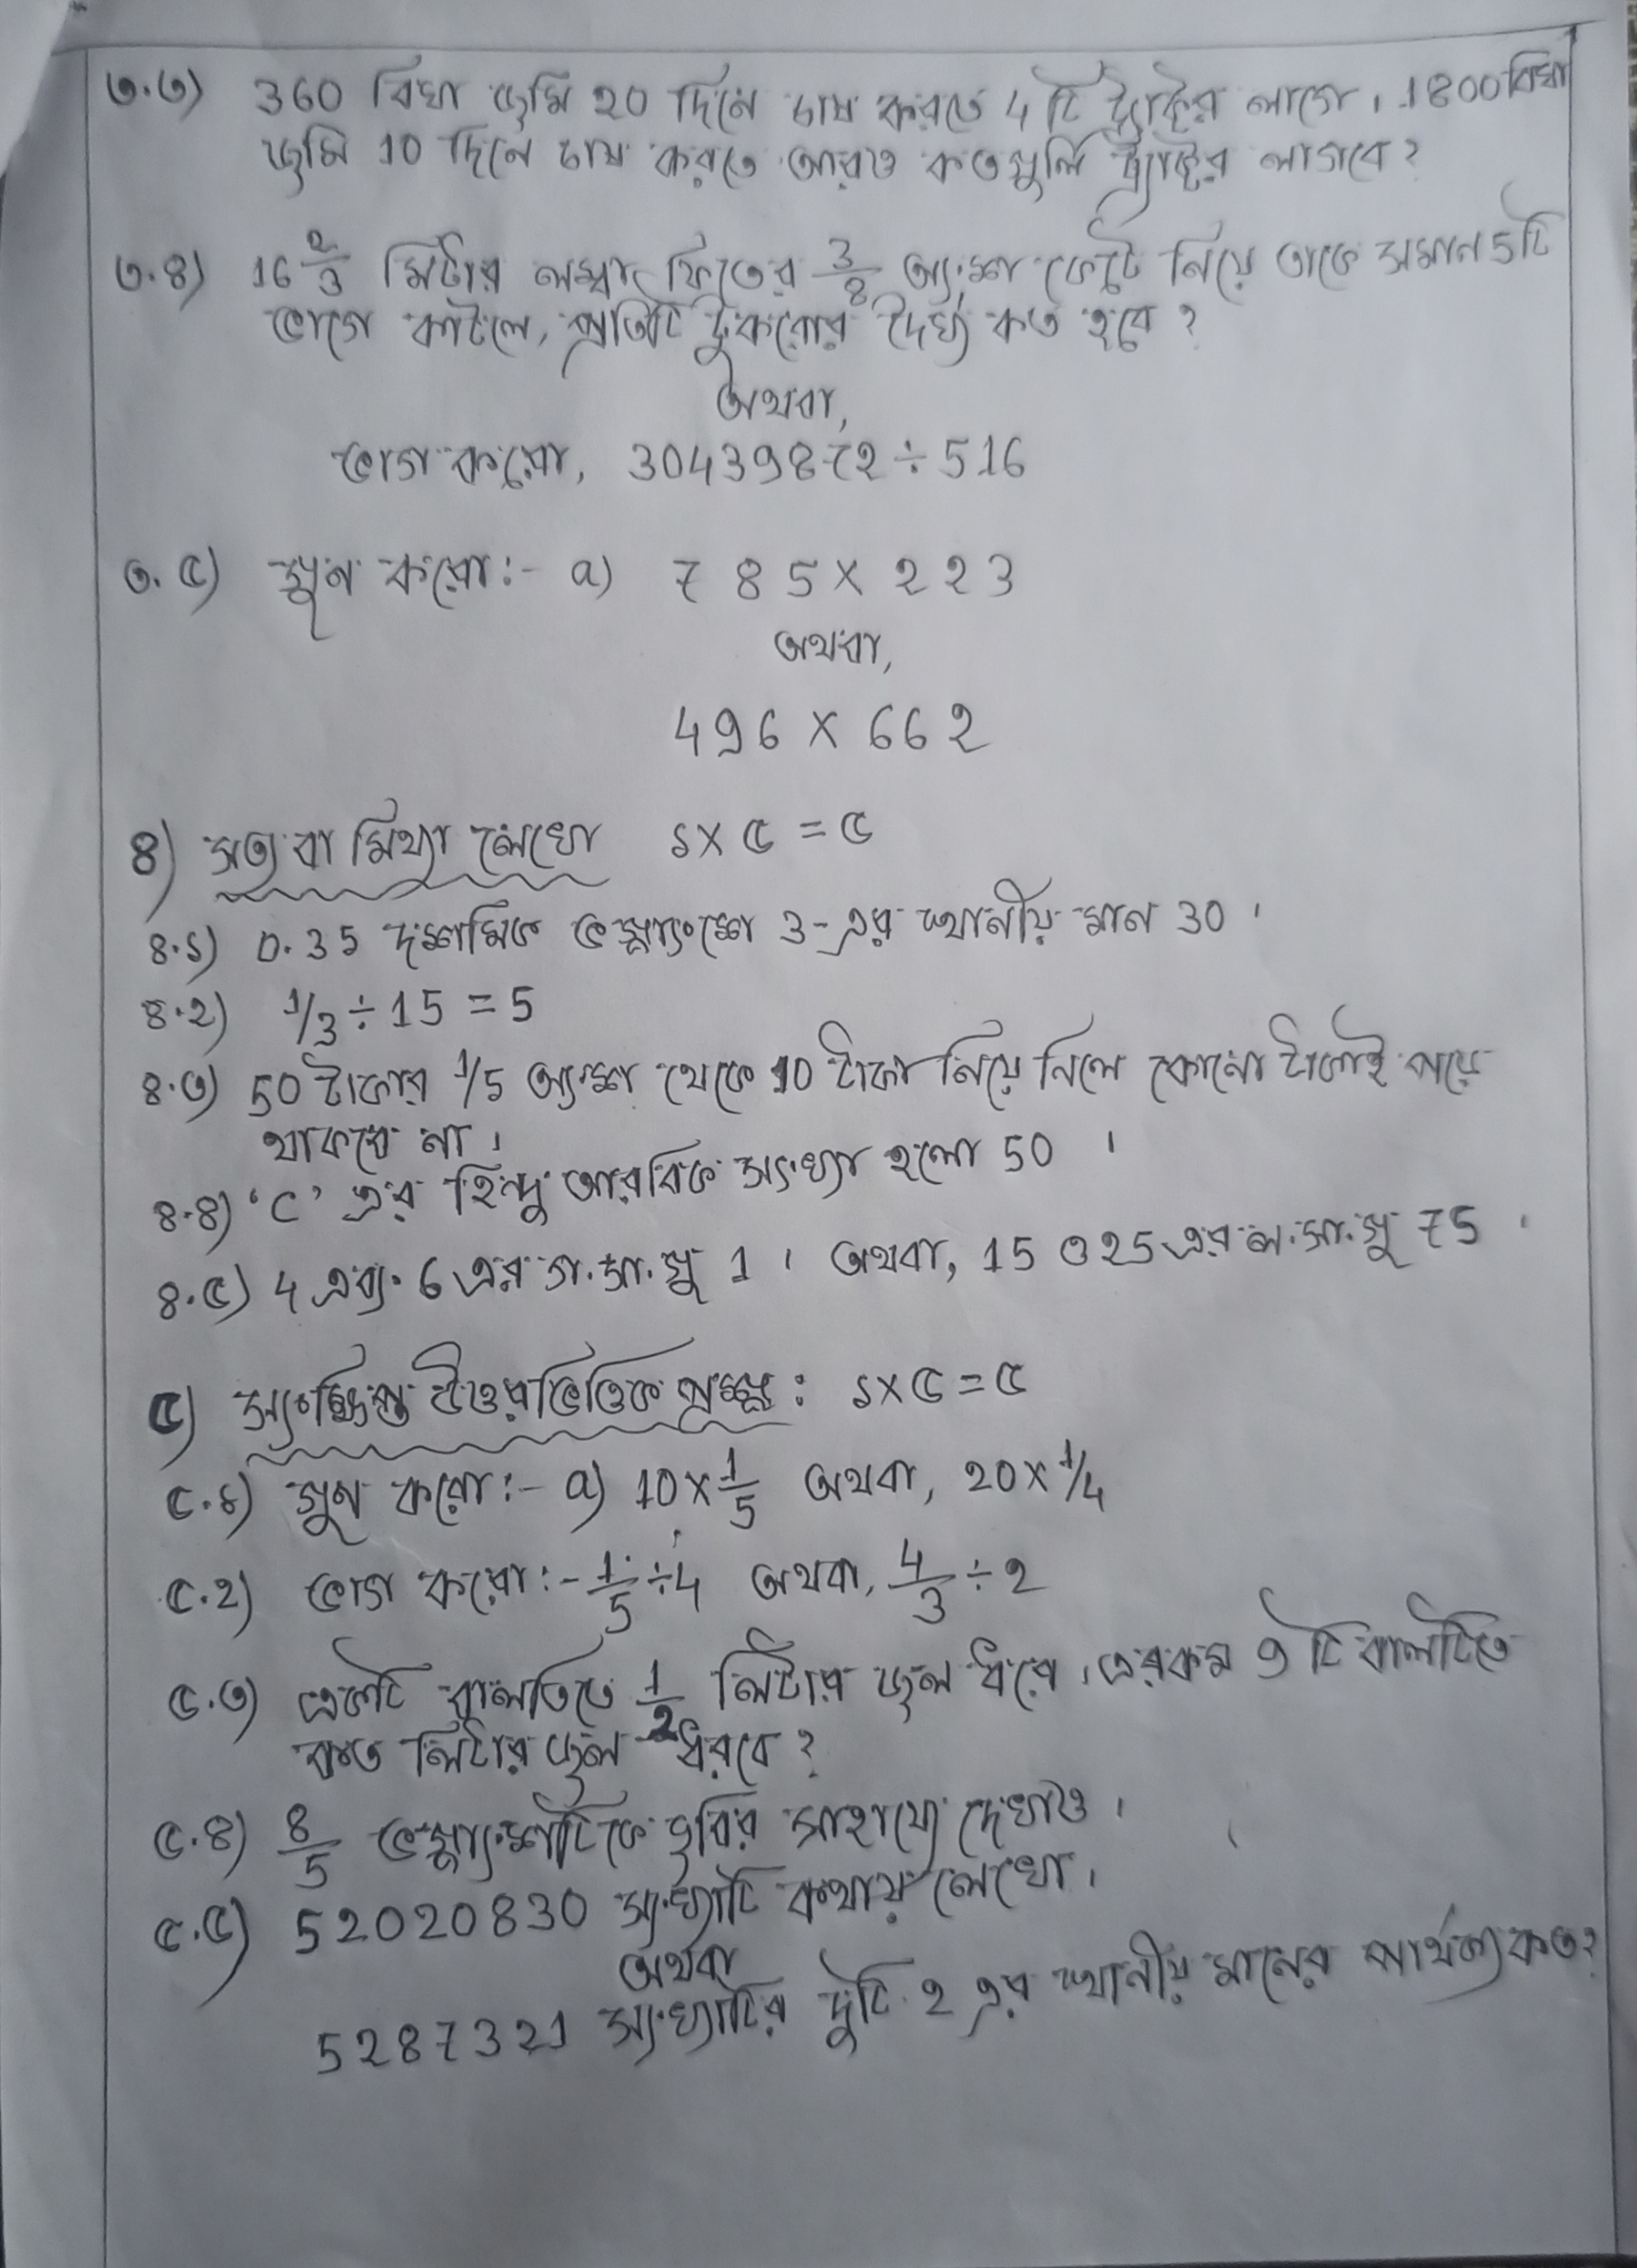 ৩.৩) 360 বিঘা জমি 20 দিনে চাষ করতে 4 টি ট্র্যাক্টর লাগে। 1800 বিঘা
জমি 10 দিনে চাষ করতে আরও কতগুলি ট্র্যাক্টর লাগবে?
৩.৪) 16 2/3 মিটার লম্বা ফিতের 3/8 অংশ কেটে নিয়ে তাকে সমান 5টি
ভাগে কাটলে, প্রতিটি টুকরোর দৈর্ঘ্য কত হবে?
অথবা,
ভাগ করো, 30439872 ÷ 516
৩.৫) গুন করো:- a) 785 x 223
অথবা,
496 x 662
৪) সত্য বা মিথ্যা লেখো ১x৫ = ৫
৪.১) 0.35 দশমিক ভগ্নাংশে 3-এর স্থানীয় মান 30।
৪.২) 1/3 ÷ 15 = 5
৪.৩) 50 টাকার 1/5 অংশ থেকে 10 টাকা নিয়ে নিলে কোনো টাকাই পরে
থাকবে না।
৪.৪) 'C' এর হিন্দু আরবিক সংখ্যা হলো 50।
৪.৫) 4 এবং 6 এর গ.সা.গু 1। অথবা, 15 ও 25 এর ল.সা.গু 75।
৫) সংক্ষিপ্ত উত্তরভিত্তিক প্রশ্ন: ১x৫ = ৫
৫.১) গুন করো:- a) 10 x 1/5 অথবা, 20 x 1/4
৫.২) ভাগ করো:- 1/5 ÷ 4 অথবা, 4/3 ÷ 2
৫.৩) একটি বালতিতে 1/2 লিটার জল ধরে। এরকম 9 টি বালটিতে
কত লিটার জল ধরবে?
৫.৪) 8/5 ভগ্নাংশটিকে ছবির সাহায্যে দেখাও।
৫.৫) 52020830 সংখ্যাটি কথায় লেখো।
অথবা
5287321 সংখ্যাটির দুটি 2 এর স্থানীয় মানের পার্থক্য কত?